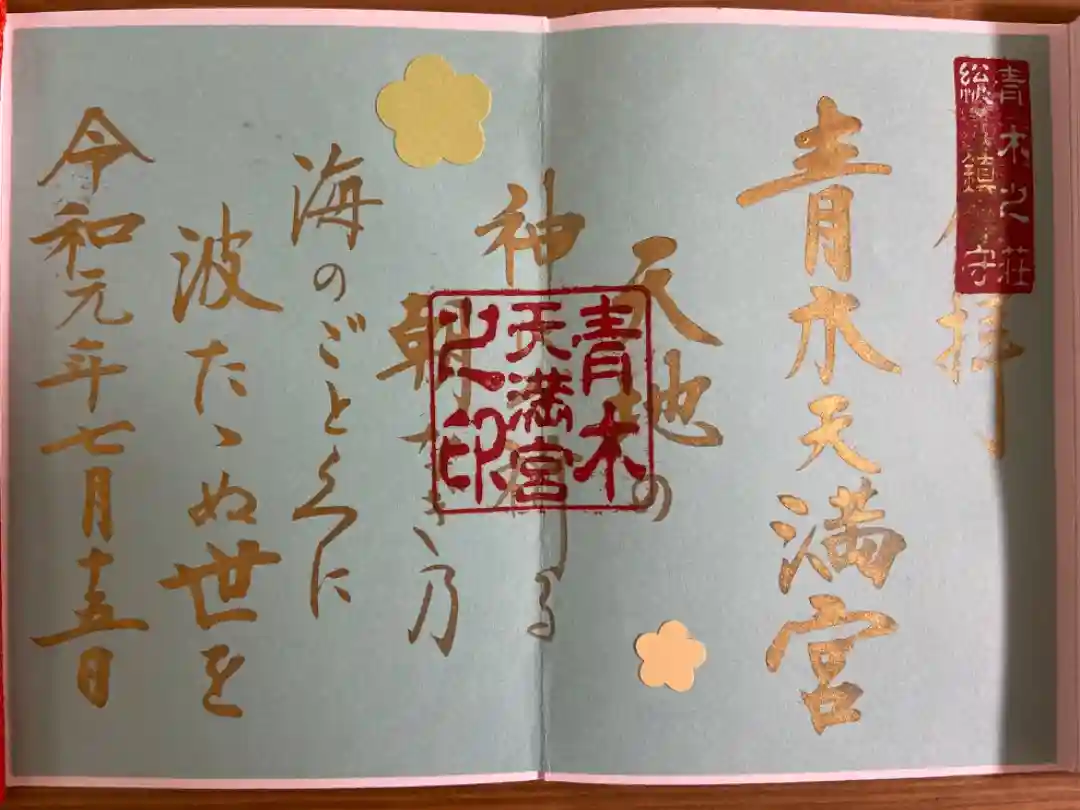 青木之荘
奉拝
青木天満宮
天地の
神にぞ祈る
朝なぎ乃
海のごとくに
波たゝぬ世を
令和元年七月十五日
青木
天満宮
之印